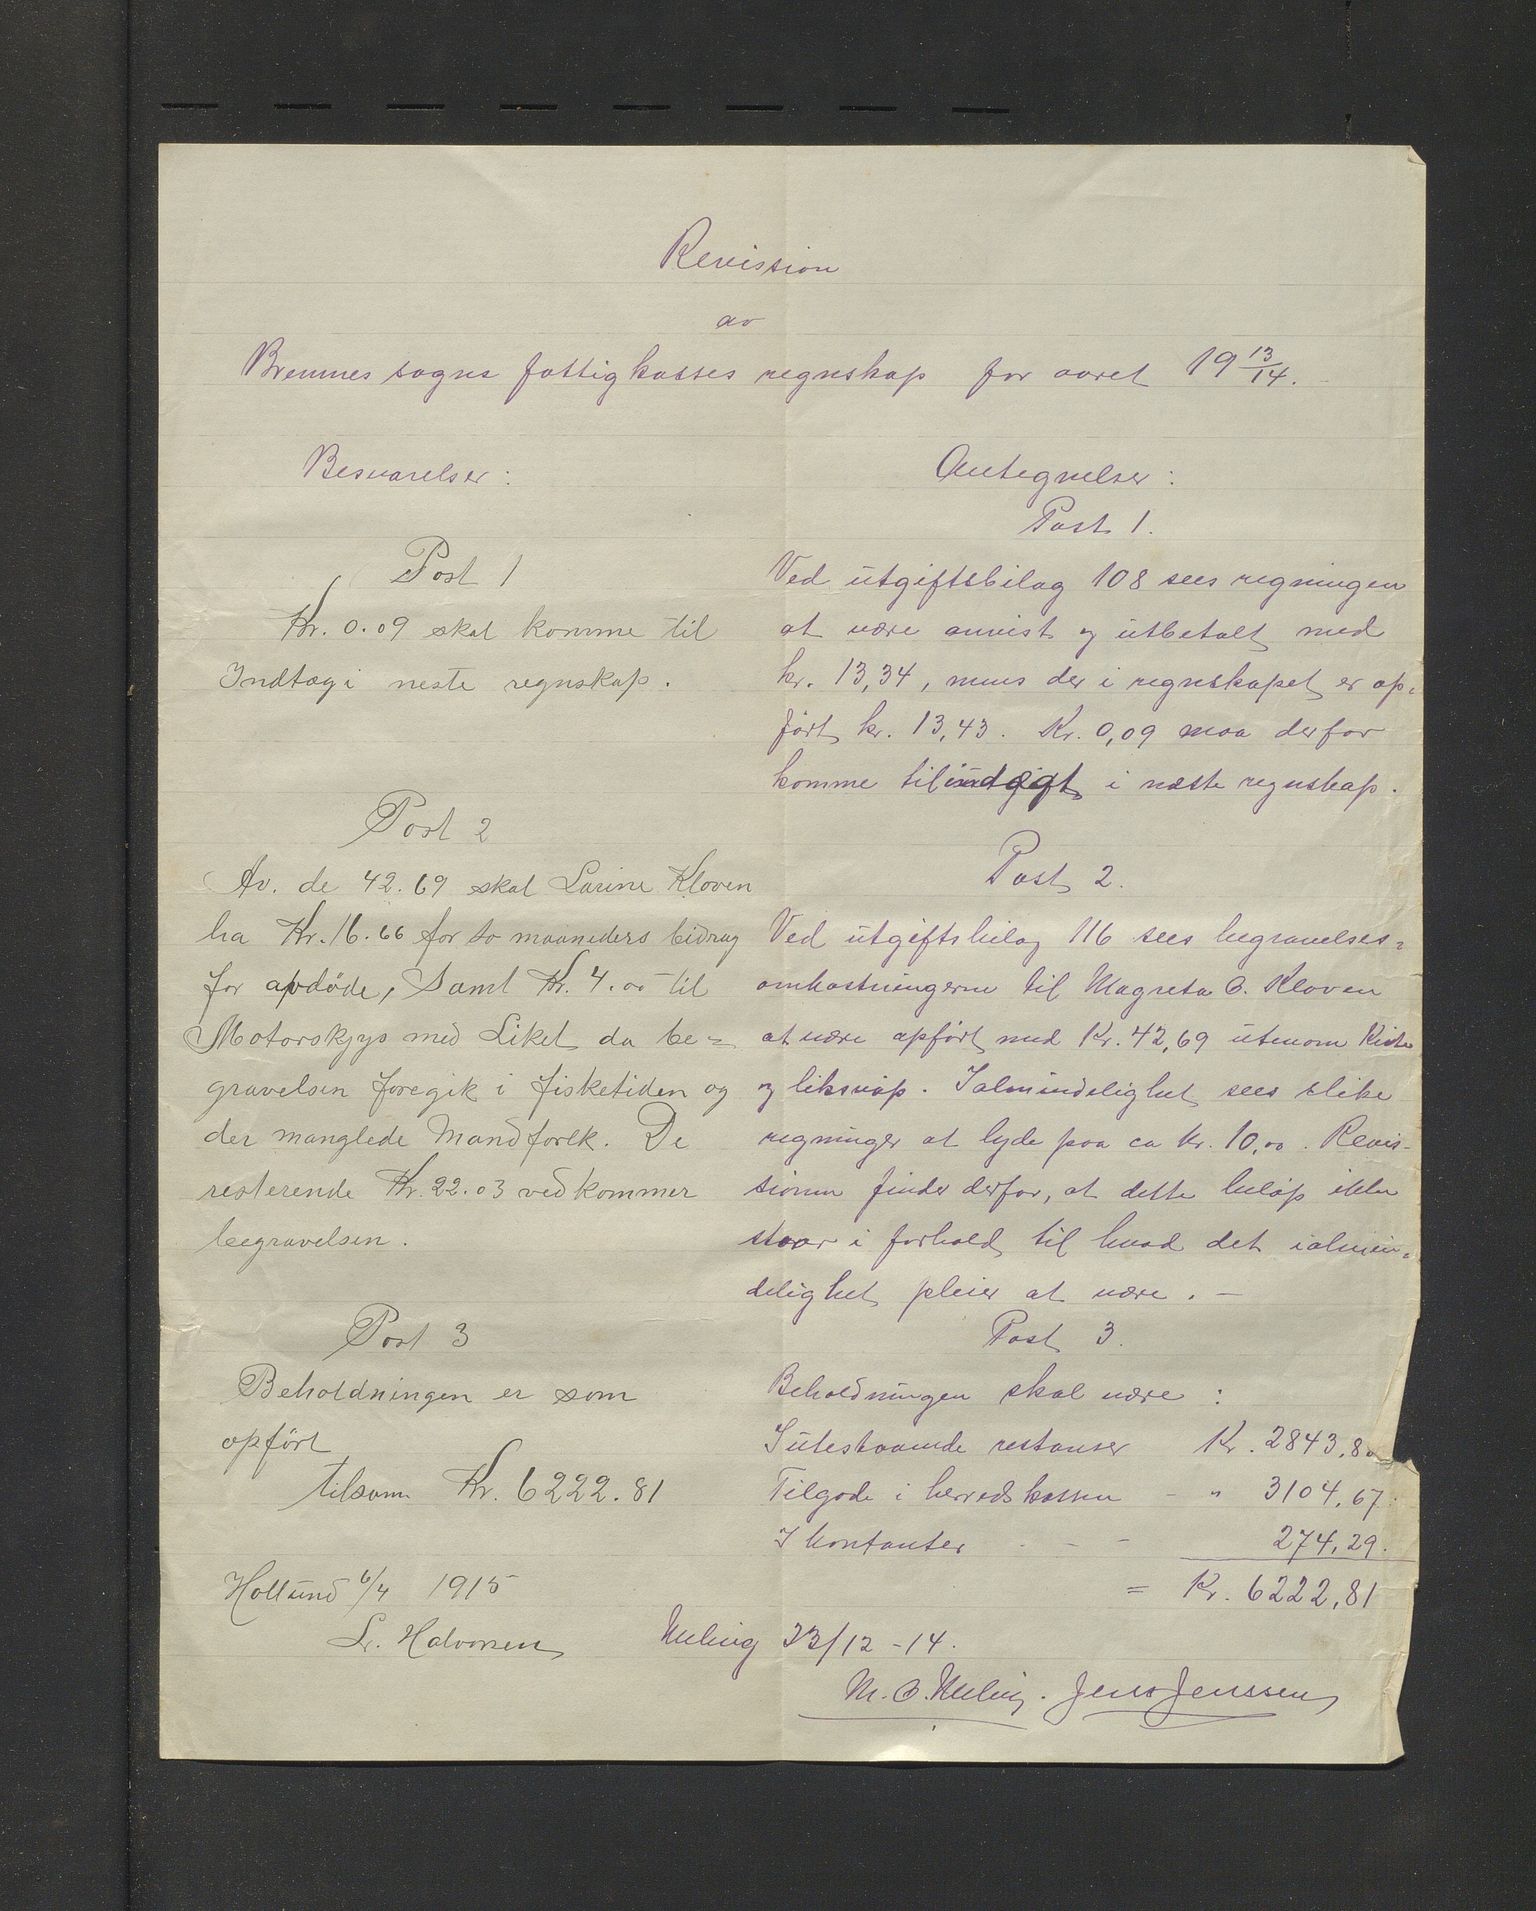 Revission
av
Bremnes sogns fattigkasses regnskap for aaret 19 13/14.
Besvarelser:
Post 1
Kr. 0.09 skal komme til
Indtægi neste regnskap.
Post 2
Av. de 42.69 skal Larine Kloven
ha Kr. 16.66 for to maaneders bidrag
for avdöde, Samt Kr. 4.00 til
Motorskjys med Liket da be=
gravelsen foregik i fisketiden og
der manglede Mandfolk. De
resterende Kr. 22.03 vedkommer
begravelsen.
Post 3
Beholdningen er som
opfört
tilsam Kr. 6222.81
Hollund 6/4 1915
L. Halvorsen
Antegnelser:
Post 1.
Ved utgiftsbilag 108 sees regningen
at være anvist og utbetalt med
kr. 13,34, mens der i regnskapet er op=
fört kr. 13,43. Kr. 0,09 maa derfor
komme til indtægt i næste regnskap.
Post 2.
Ved utgiftsbilag 116 sees begravelses=
omkostningerne til Magreta O. Kloven
at være opfört med Kr. 42,69 utenom Kiste
og liksvöp. I almindelighet sees slike
regninger at lyde paa ca kr. 10,00. Revis-
sionen finder derfor, at dette belöp ikke
staar i forhold til hvad det i almin=
delighet pleier at være. —
Post 3.
Beholdningen skal være:
I utestaaende restanser Kr. 2843,8
Tilgode i herredskassen - " 3104,67.
I kontanter - - - 274,29.
= Kr. 6222,81
Meling 23/12 -14.
M. O. Meling. Jens Jenssen